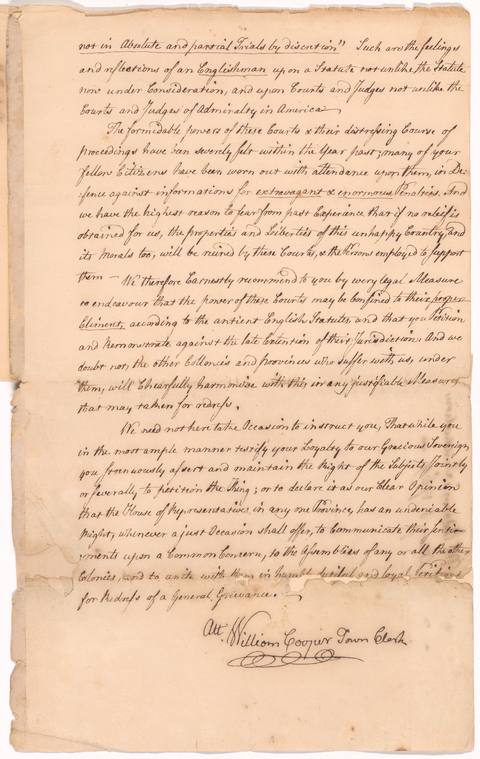 not in Absolute and partial Trials by discretion" Such are the feelings
and reflections of an Englishman upon a Statute not unlike the Statute
now under Consideration, and upon Courts and Judges not unlike the
Courts and Judges of Admiralty in America
The formidable powers of these Courts & their distressing Course of
procedings have been severely felt within the Year past; many of your
fellow Citizens have been worn out with attendance upon them, in De=
fence against informations for extravagant & enormous Penalties. And
we have the highest reason to fear from past Experience that if no relief is
obtained for us, the properties and Liberties of this unhappy Country, and
its Morals too, will be ruined by these Courts, & the Persons employed to support
them — We therefore Earnestly recommend to you by every legal Measure
to endeavour that the power of these Courts may be confined to their proper
Eliment, according to the antient English Statutes, and that you Petition
and Remonstrate against the late Extention of their Jurisdiction. And we
doubt not, the other Collonies and provinces who suffer with us, under
them, will Chearfully harmonise with this in any justifiable Measures
that may taken for redress.
We need not here take Occasion to instruct you, That while you
in the most ample manner testify your Loyalty to our Gracious Sovereign
you strenuously assert and maintain the Right of the Subjects, Jointly
or Severally to petition the King; or to declare it as our Clear Opinion
that the House of Representatives in any one Province, has an undeniable
Right, whenever a just Occasion shall offer, to Communicate their Senti=
ments upon a Common Concern, to the Assemblies of any or all the other
Colonies, and to unite with them in humble dutiful and loyal Petitions
for Redress of a General Grievance.
Att. William Cooper Town Clerk